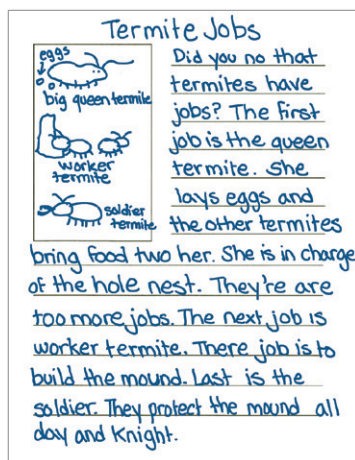 Termite Jobs
eggs
big queen termite
worker
termite
soldier
termite
Did you no that
termites have
jobs? The first
job is the queen
termite. She
lays eggs and
the other termites
bring food two her. She is in charge
of the hole nest. They're are
too more jobs. The next job is
worker termite. There job is to
build the mound. Last is the
soldier. They protect the mound all
day and Knight.